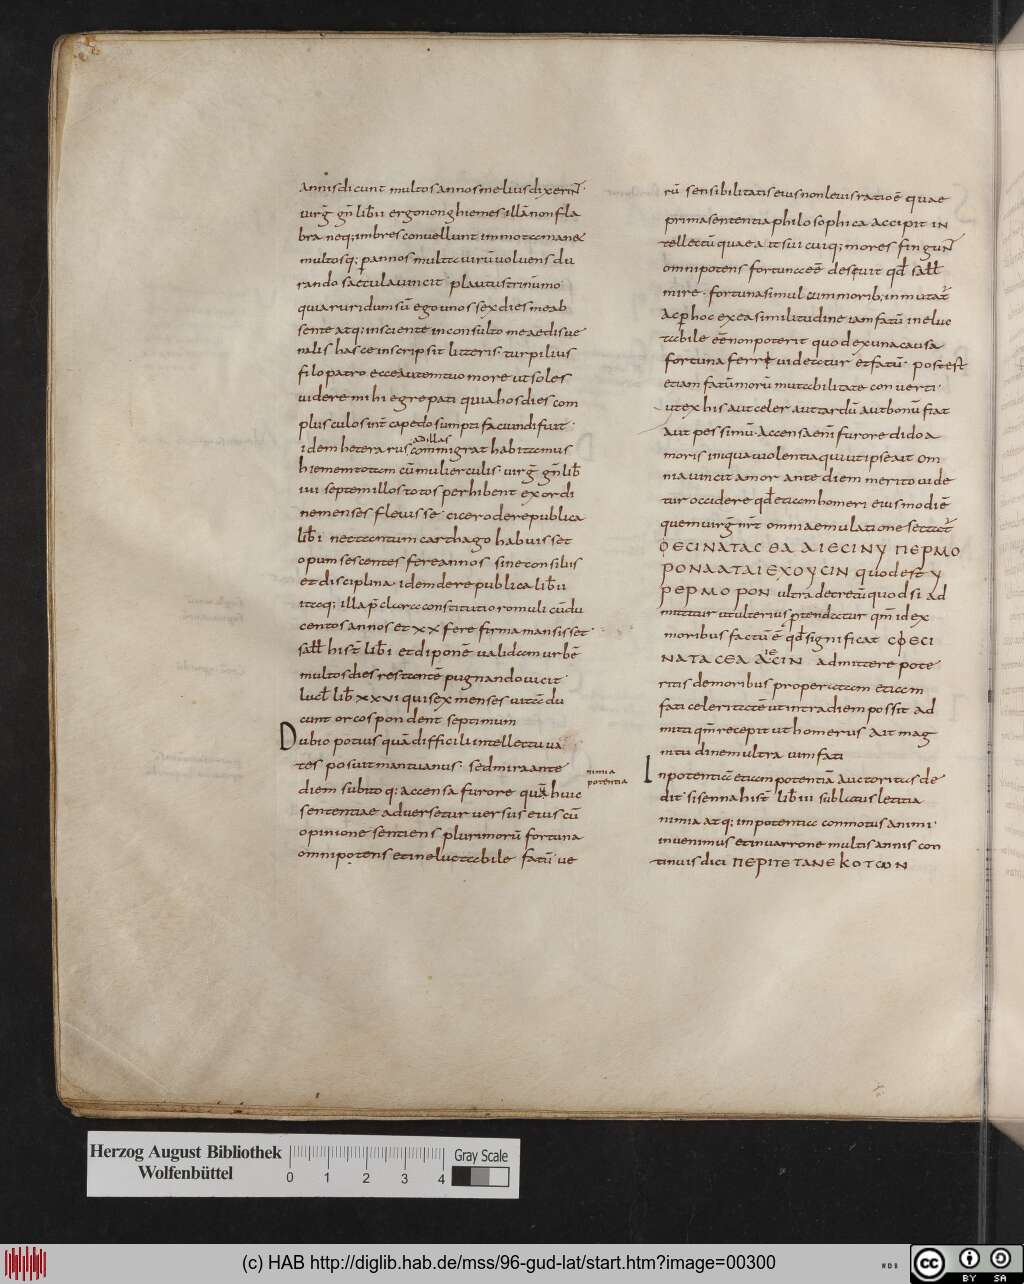 Annis dicunt multos annos melius dixerint̄
virḡ gn̄ lib̄ II ergo non g hiemes illā non fla
bra neq; imbres convellunt inmota manet
multosq; p annos multa virū volvens du
rando saecula vincit plautus trinūmo
quia ruri dum sū ego unos sex dies me ab
sente atq; insciente inconsulto meae disve
nalis hasce inscripsit litteris turpilius
filopatro ecce autem tuo more ut soles
videre mihi egrepati quia hos dies com
plusculos int̄ capedo sumpti faciundi fuit
idem hetera rus ad illas commigrat habitamus
hiemem totam cū mulierculis virḡ gn̄ lib̄
IIII septem illos totos perhibent ex ordi
ne menses flevisse cicero de republica
lib̄ I nec tantum carthago habuisset
opum sescentos fere annos sine consilus
et disciplina idem de republica lib̄ II
itaq; illa p̄clara constitutio romuli cū du
centos annos et XX fere firma mansisset
sall̄ hist̄ lib̄ I et di ponē validam urbē
multos dies restantē pugnando vicit
lucl̄ lib̄ XXVI qui sex menses vitā du
cunt orco spondent septimum
Dubio potius quā difficili intellectu va
tes posuit mantuanus sed mira ante
diem subitoq; accensa furore quā huic
sententiae adversetur versus eius cū
opinione sentiens plurimorū fortuna
omnipotens et ineluctabile fatū ve
nimia
potentia
rū sensibilitatis eius non levis ratio ē quae
prima sententia philosophica accipit in
tellectū quae ait sui cuiq; mores fingunt̄
omnipotens fortuna eē deseruit qd̄ sall̄
mire fortuna simul cum morib; inmutat̄
Ac p hoc ex ea similitudine iam fatū ineluc
tabile eē non poterit quod ex una causa
fortuna ferre videatur et fatū potest
etiam fatū morū mutabilitate converti
ut ex his aut celer aut tardū aut bonū fiat
aut pessimū Accensa eni furore dido a
moris in qua violentia qui ut ipse ait om
nia vincit amor ante diem merito vide
tur occidere qd̄ etiam homeri eius modi ē
quem virḡ nr̄t omni aemulatione sectat̄
ΦECINATAC ΘA AIECINY ΠEPMO
PONAATAIEXOYCIN quod est Y
PEPMOPON ultra decretū quod si ad
mittitur ut ulterius p̄tendatur qm̄ id ex
moribus factū ē qd̄ significat CΦECI
NATACEA AIECIN IE admittere pote
ritis de moribus properatam etiam
fati celeritatē ut intra diem possit ad
mitti qm̄ recepit ut homerus ait mag
nitudinem ultra vim fati
Inpotentia etiam potentiā auctoritas de
dit sisenna hist̄ lib̄ III sublatus letitia
nimia atq; impotentia commotus animi
invenimus et in varrone multis annis con
tinuis dici ΠEPIΠETANEKOTωN
Herzog August Bibliothek
Wolfenbüttel
0 1 2 3 4
Gray Scale
(c) HAB http://diglib.hab.de/mss/96-gud-lat/start.htm?image=00300
WDB
cc
BY SA